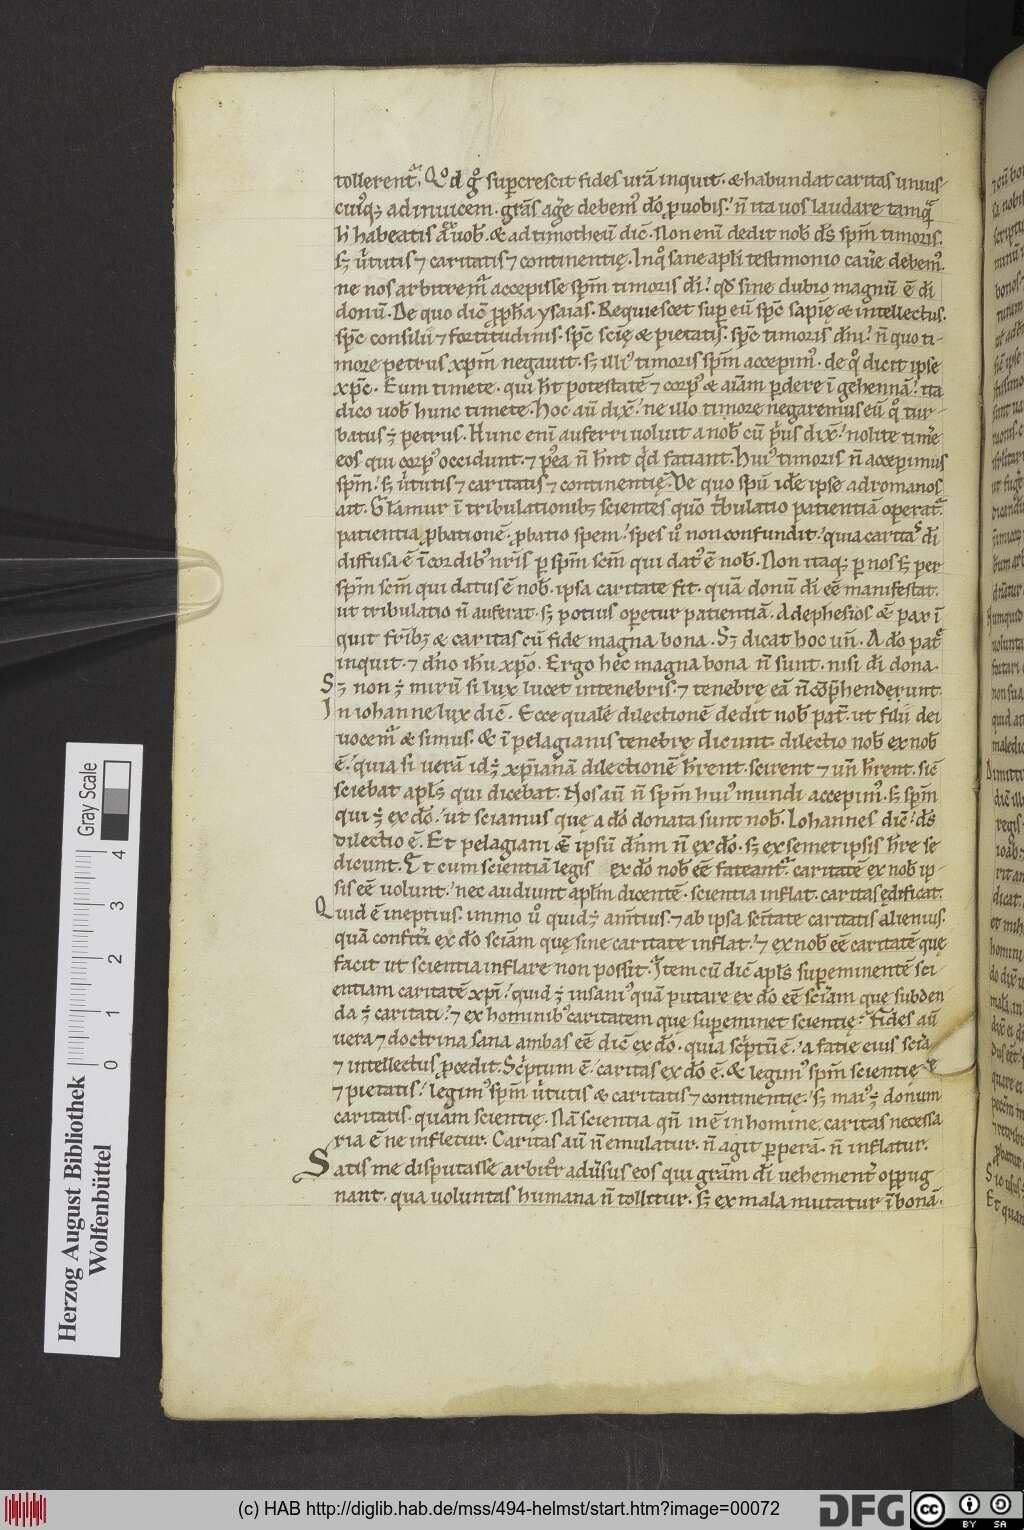 tollerent᷑. Qđ gͦ supercrescit fides urā inquit. & habundat caritas unius
cuiꝰq; adinuicem. grās agͥe debemꝰ dō ꝓ uobis. n̄ ita uos laudare tamqᷓ
h̄ habeatis a uob̄. & ad timotheū dic̄. Non enī dedit nob̄ ds̄ sp̄m timoris.
sꝫ uͥtutis ⁊ caritatis ⁊ continentię. In qͦ sane apl̄i testimonio cauͤe debemꝰ.
ne nos arbitremᷣ accepisse sp̄m timoris di. qđ sine dubio magnū ē di
donū. De quo dic̄ ꝓph̄a ysaias. Requiescet suꝑ eū sp̄c sapię & intellectus.
sp̄c consilii ⁊ fortitudinis. sp̄c scię & pietatis. sp̄c timoris dn̄i. n̄ quo ti-
more petrus xp̄m negauit. sꝫ illiꝰ timoris sp̄m accepimꝰ. de qͦ dicit ipse
xp̄c. Eum timete. qui h̄t potestatē ⁊ corpꝰ & aīam ꝑdere ī gehennā. ita
dico uob̄ hunc timete. Hoc aū dix̄. ne illo timore negaremus eū qͦ tur-
batus ÷ petrus. Hunc enī auferri uoluit a nob̄ cū pͥus dix̄. nolite timͤe
eos qui corpꝰ occidunt. ⁊ pͦea n̄ h̄nt qͥd faciant. Huiꝰ timoris n̄ accepimus
sp̄m. sꝫ uͥtutis ⁊ caritatis ⁊ continentię. De quo spū idē ipse ad romanos
ait. Gl̄amur ī tribulationibꝫ scientes quō tͥbulatio patientiā operat᷑.
patientia ꝓbationē. ꝓbatio spem. spes uͦ non confundit. quia caritas di
diffusa ē ī cordibꝰ nr̄is ꝑ sp̄m scm̄ qui datꝰ ē nob̄. Non itaq; ꝑ nos sꝫ per
sp̄m scm̄ qui datus ē nob̄. ipsa caritate fit. quā donū di eē manifestat.
ut tribulatio n̄ auferat. sꝫ potius oꝑetur patientiā. Ad ephesios &̄ pax ī
quit fr̄ibꝫ & caritas cū fide magna bona. Sꝫ dicat hoc un̄. A dō patͤ
inquit. ⁊ dn̄o ih̄u xp̄o. Ergo hęc magna bona n̄ sunt. nisi di dona.
Sꝫ non ÷ mirū si lux lucet in tenebris. ⁊ tenebrę eā n̄ cōp̄henderunt.
In iohanne lux dic̄. Ecce qualē dilectionē dedit nob̄ pat̄. ut filii dei
uocemᷣ & simus. & ī pelagianis tenebrę dicunt dilectio nob̄ ex nob̄
ē. quia si uerā id ÷ xp̄ianā dilectionē h̄rent. scirent ⁊ un̄ h̄rent. sic̄
sciebat apl̄s qui dicebat. Nos aū n̄ sp̄m huiꝰ mundi accepimꝰ. sꝫ sp̄m
qui ÷ ex dō. ut sciamus quę a dō donata sunt nob̄. Iohannes dic̄. ds̄
dilectio ē. Et pelagiani &̄ ipsū dn̄m n̄ ex dō. sꝫ ex semet ipsis h̄re se
dicunt. Et cum scientiā legis ex dō nob̄ eē fateant᷑. caritatē ex nob̄ ip-
sis eē uolunt. nec audiunt apl̄m dicentē. scientia inflat. caritas ędificat.
Quid ē ineptius. immo uͦ quid ÷ am̄tius. ⁊ ab ipsa sc̄itate caritatis alienius.
quā confiteri ex dō sciām quę sine caritate inflat. ⁊ ex nob̄ eē caritatē quę
facit ut scientia inflare non possit. Item cū dic̄ apl̄s supereminentē sci-
entiam caritatē xp̄i. quid ÷ insaniꝰ quā putare ex dō eē sciām que subden
da ÷ caritati. ⁊ ex hominibꝰ caritatem quę suꝑeminet scientię. Fides aū
uera ⁊ doctrina sana ambas eē dic̄ ex dō. quia sc̄ptū ē. a facie eius sciā
⁊ intellectus ꝓcedit. Sc̄ptum ē. caritas ex dō ē. & legimꝰ sp̄m scientię
⁊ pietatis. legimꝰ sp̄m uͥtutis & caritatis ⁊ continentię. sꝫ maiꝰ ÷ donum
caritatis. quam scientię. Nā scientia qn̄ inē in homine. caritas necessa
ria ē ne infletur. Caritas aū n̄ emulatur. n̄ agit ꝑperā. n̄ inflatur.
Satis me disputasse arbitͦr aduͥsus eos qui grām di uehementͥ oppug
nant. qua uoluntas humana n̄ tollitur. sꝫ ex mala mutatur ī bonā.
Herzog August Bibliothek
Wolfenbüttel
Gray Scale
0 1 2 3 4
(c) HAB http://diglib.hab.de/mss/494-helmst/start.htm?image=00072
DFG
cc
BY SA